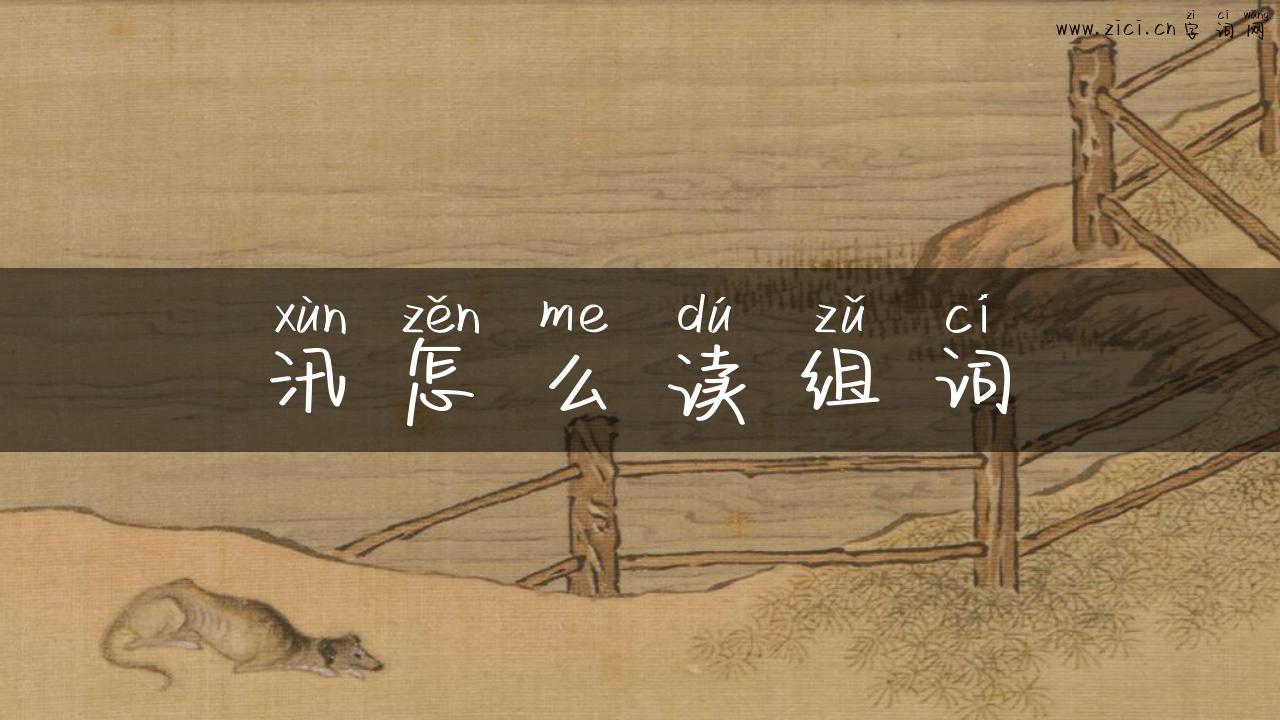 zì cí wǎng
www.zici.cn 字 词 网
xùn zěn me dú zǔ cí
汛 怎 么 读 组 词